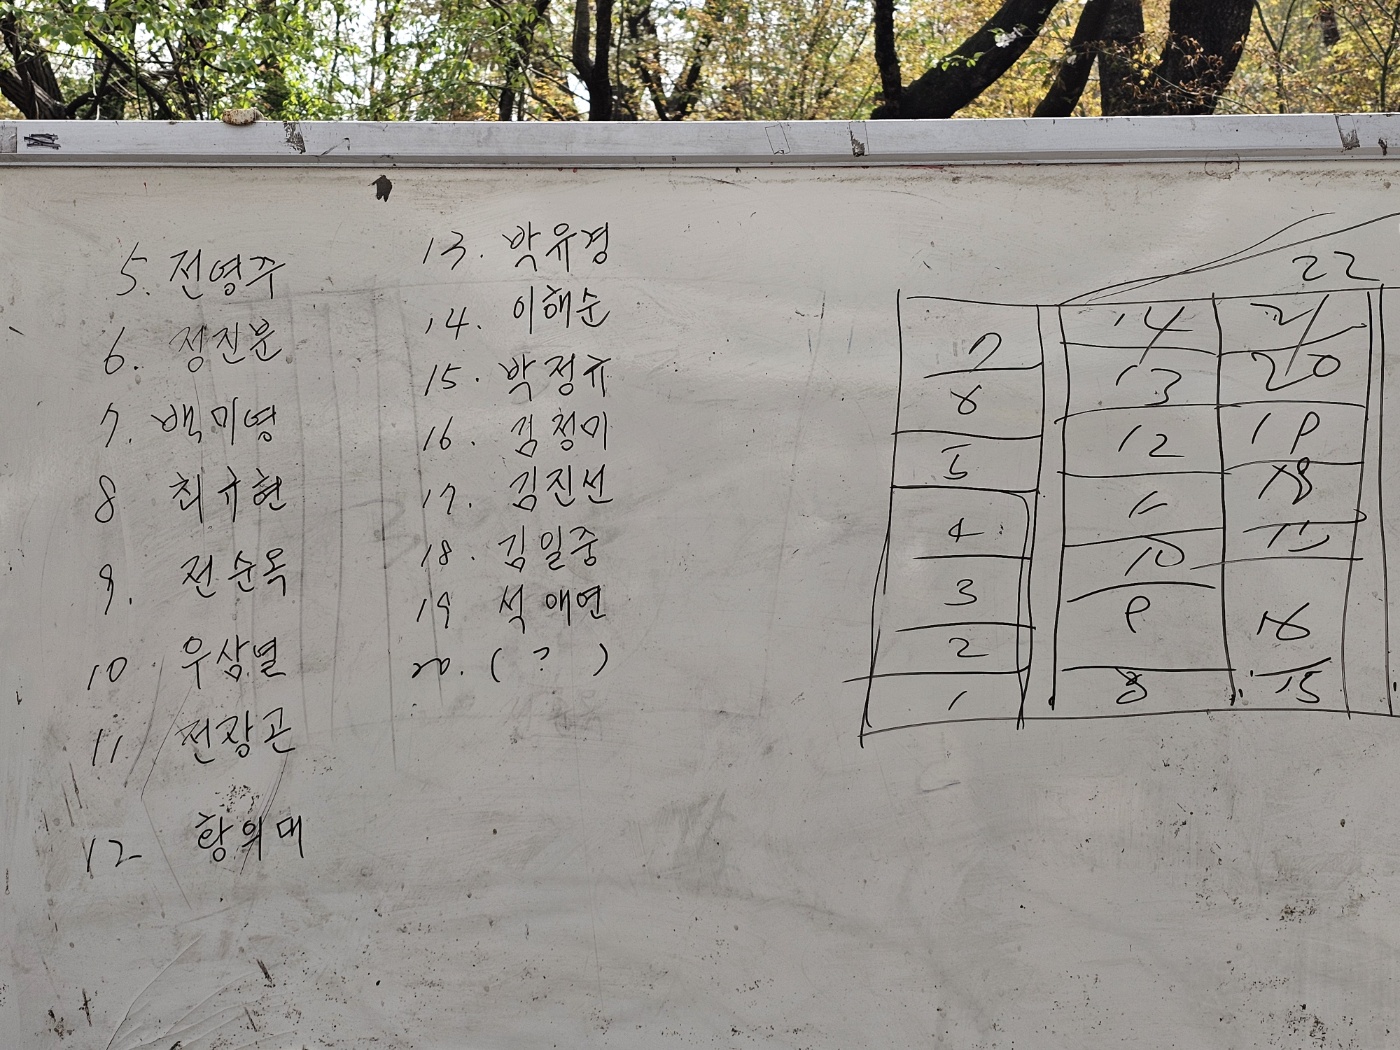 5. 전영주
6. 정진문
7. 백미영
8 최규현
9. 전순옥
10. 우상별
11. 전장곤
12 황의대
13. 박유경
14. 이해순
15. 박정규
16. 김청미
17. 김진선
18. 김일중
19 석애연
20. ( ? )
22
7 14 21
6 13 20
5 12 19
4 11 18
3 10 17
2 9 16
1 8 15